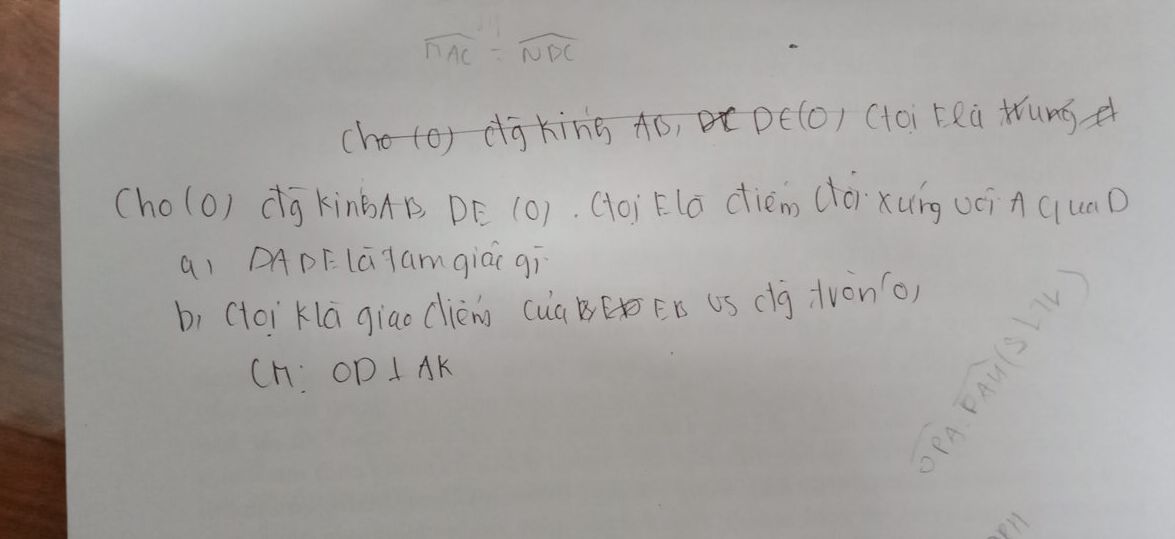 MAC = NDC
Cho (O) đg kính AB, DC DE(O) Gọi E là trung đ
Cho (O) đg kính AB, DE (O). Gọi E là điểm đối xứng với A qua D
a, DADE là tam giác gì
b, Gọi K là giao điểm của BED EB vs đg tròn (O)
CM: OD ⊥ AK
OPA. PAU (SLTL)